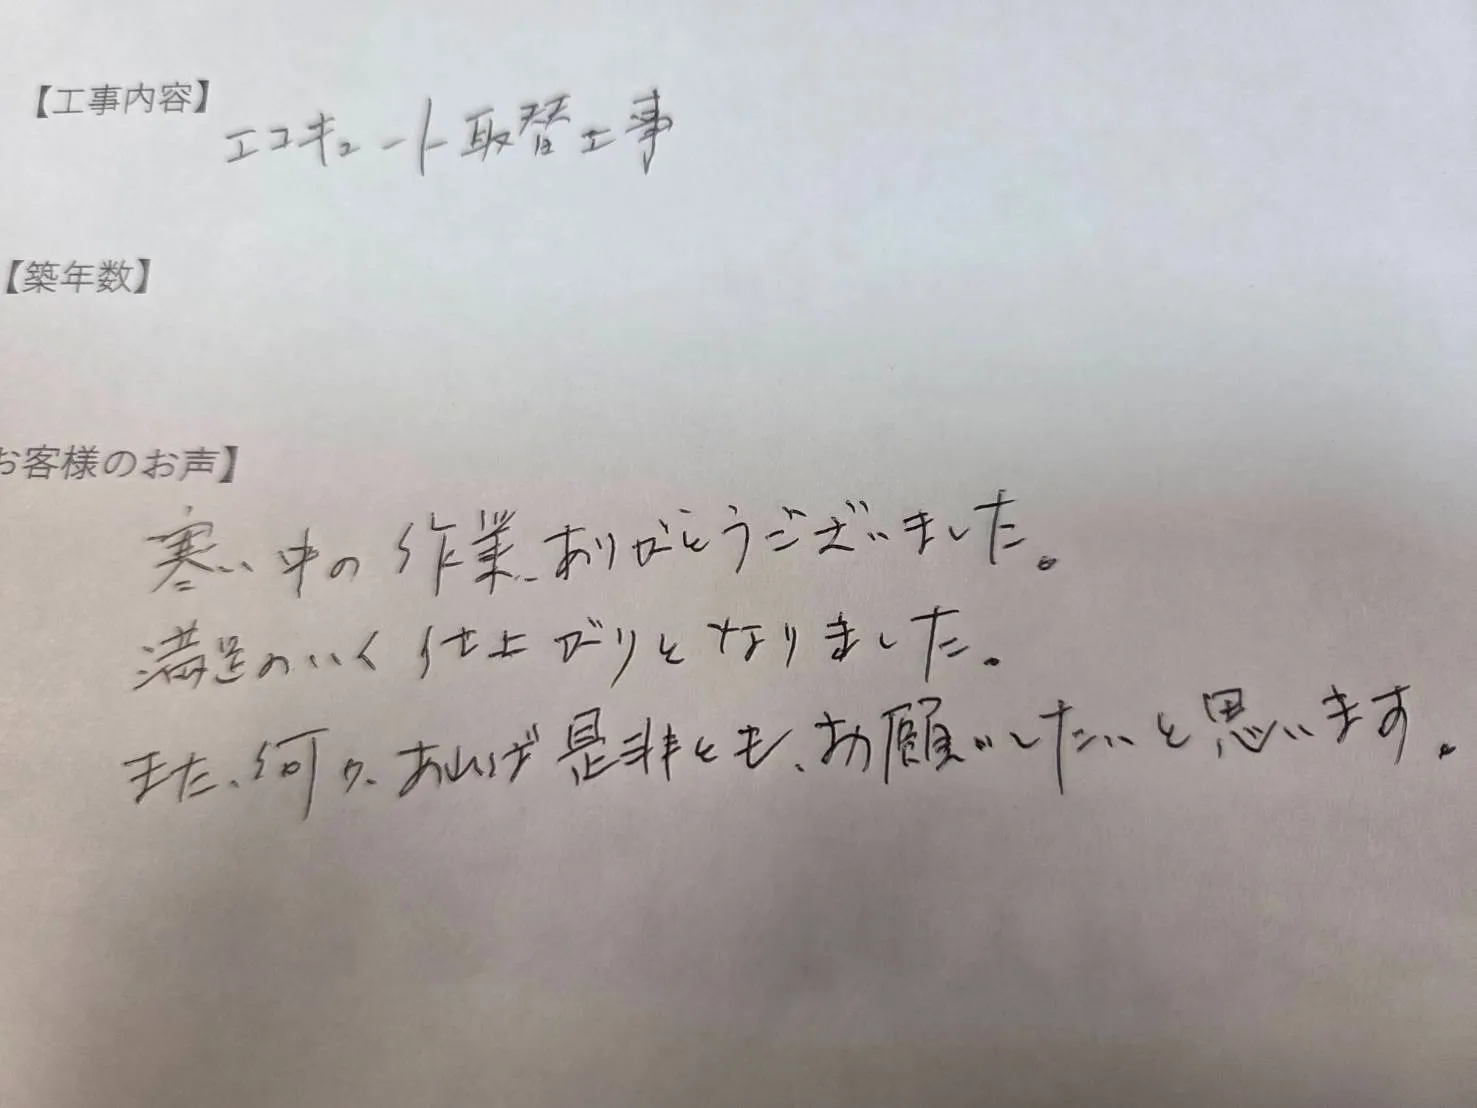 【工事内容】
エコキュート取替工事
【築年数】
お客様のお声】
寒い中の作業、ありがとうございました。
満足のいく仕上がりとなりました。
また、何か、あれば是非とも、お願いしたいと思います。